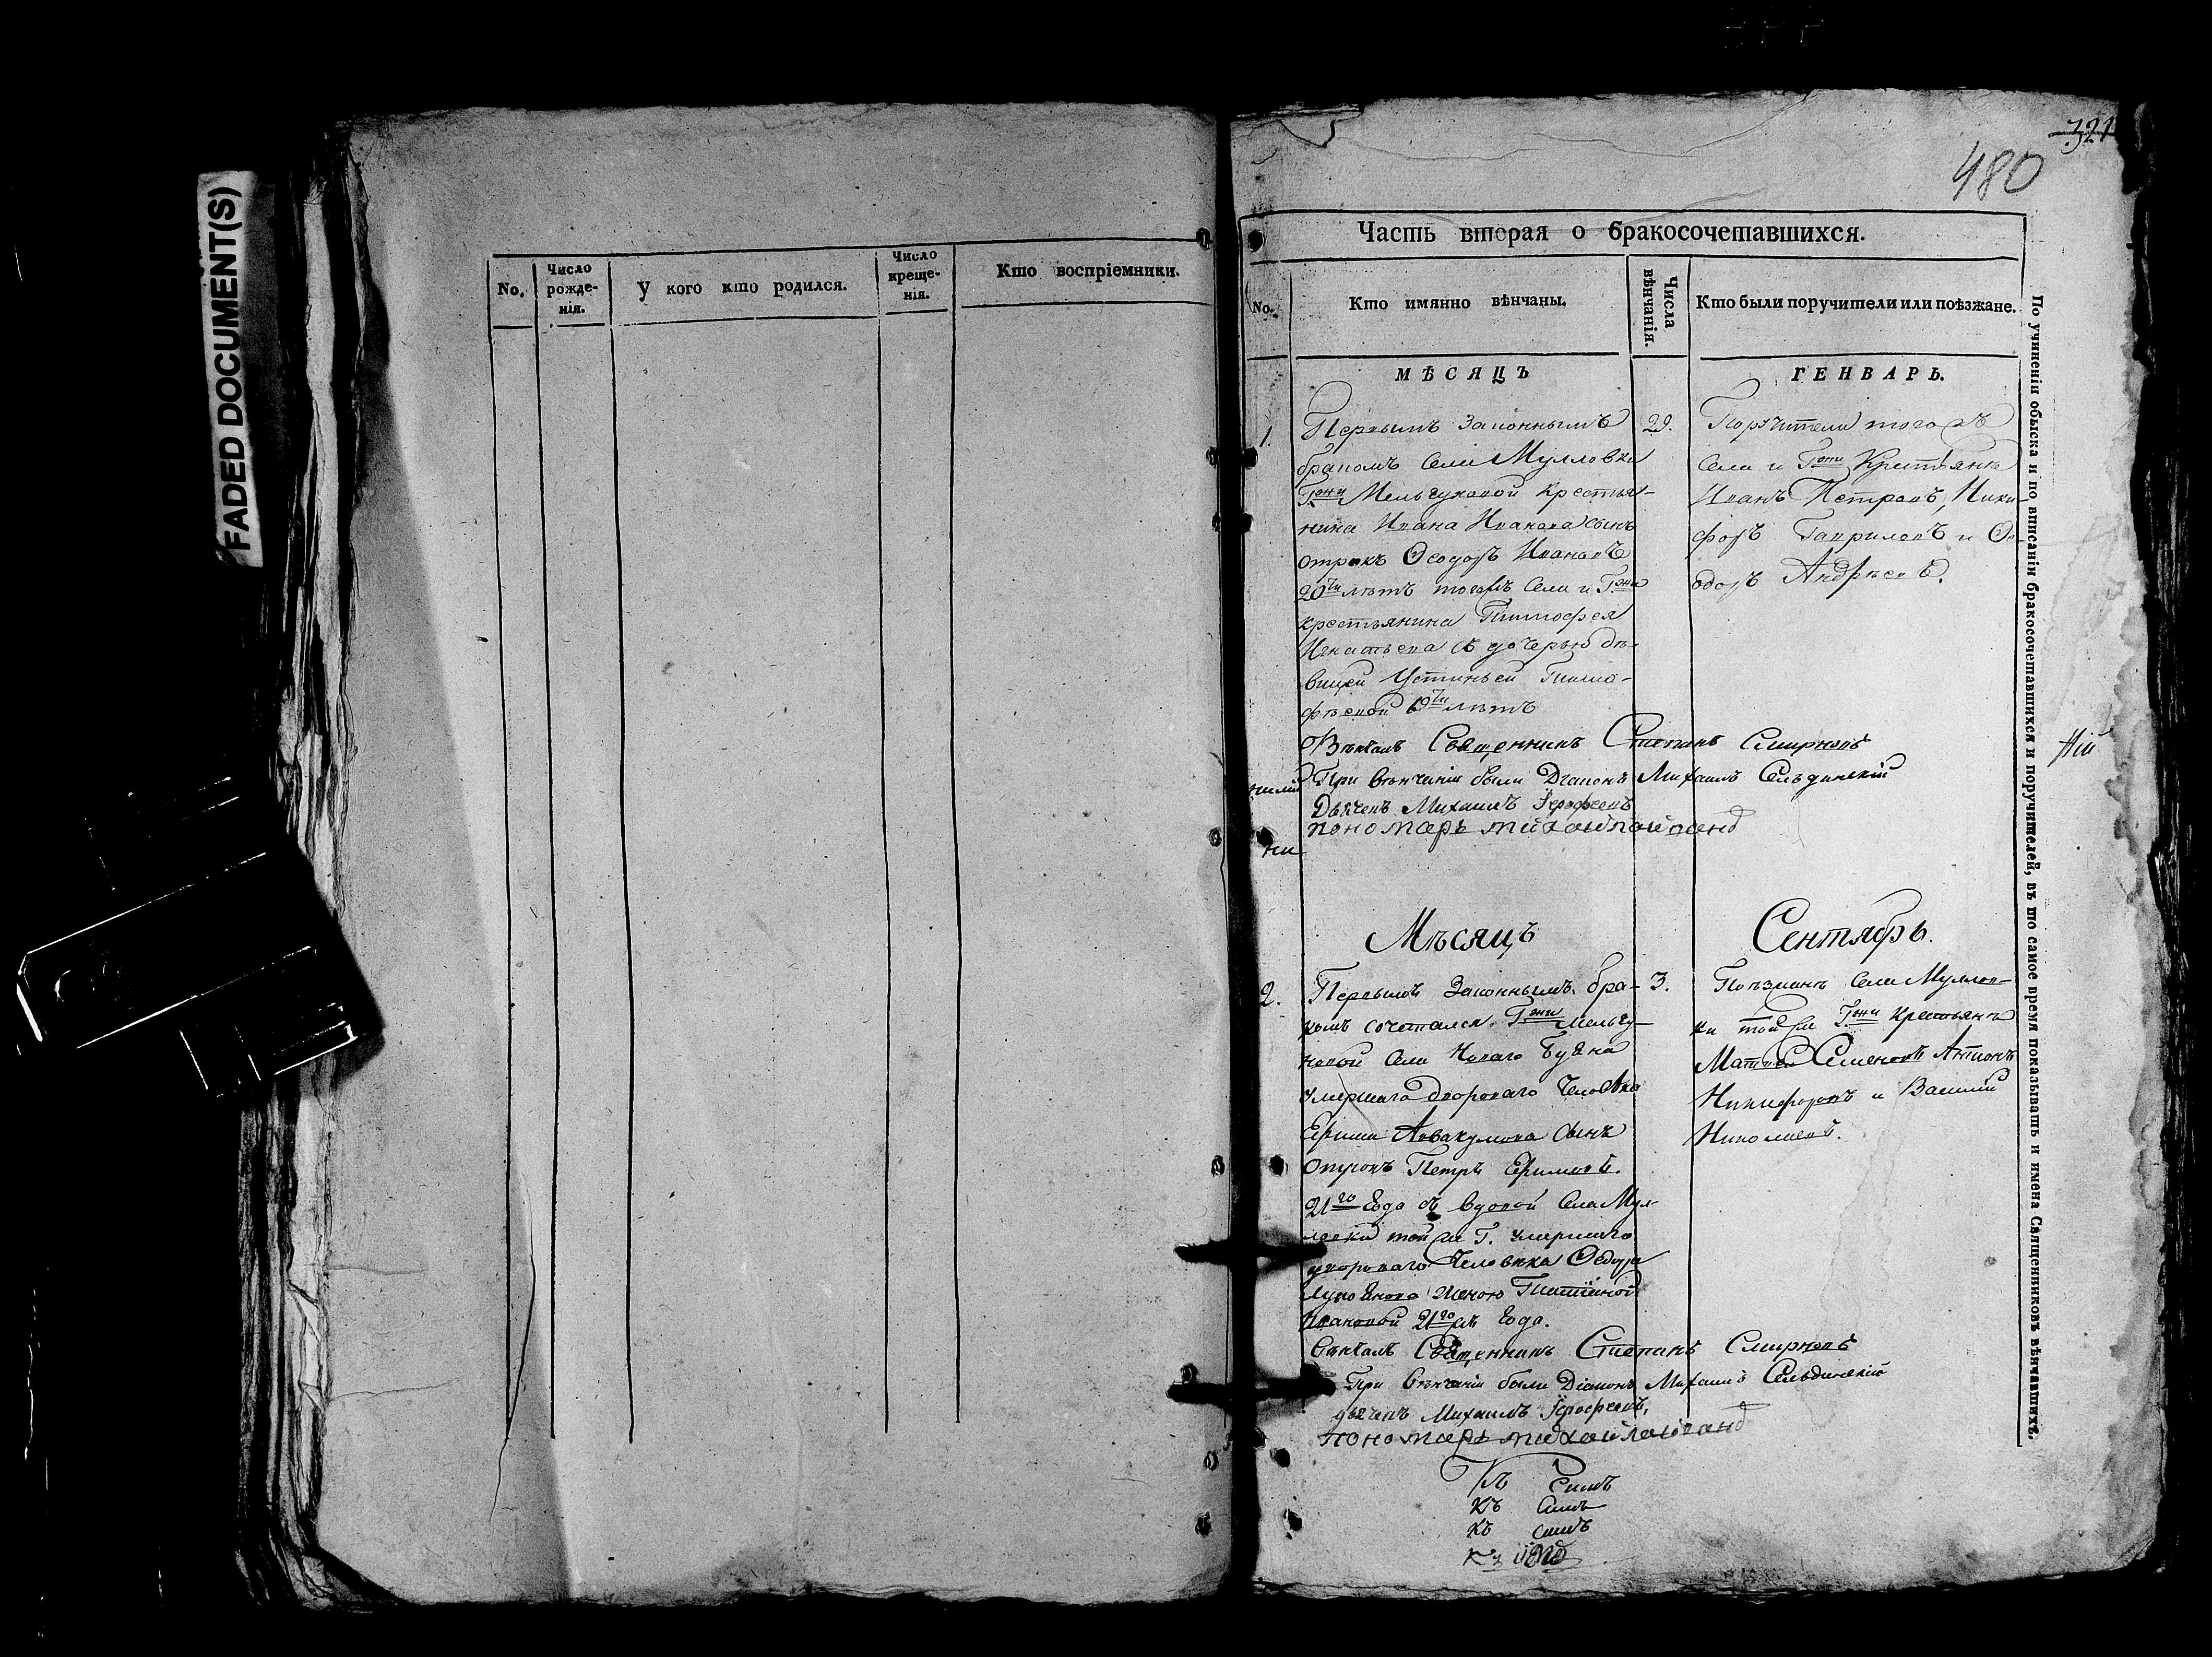 FADED DOCUMENT(S)
No.
Число рожде-нія.
У кого кто родился.
Число креще-нія.
Кто воспріемники.
321
480
Часть вторая о бракосочетавшихся.
No.
Кто имянно вѣнчаны.
Числа вѣнчанія.
Кто были поручители или поѣзжане.
МѢСЯЦЪ
ГЕНВАРЬ.
1.
Первымъ Законнымъ
бракомъ Села Мулловки
Гжи Мельгуновой крестья-
нина Ивана Иванова сынъ
отрокъ Ѳеодоръ Ивановъ
20ти лѣтъ тогожъ Села и Гжи
крестьянина Тимофея
Игнатьева съ дочерью дѣ-
вицей Устиньей Тимо-
фѣевой лѣтъ
29.
Поручители тогожъ
Села и Гжи Крестьяне
Иванъ Петровъ, Ники-
форъ Гавриловъ и Ѳе-
одоръ Андрѣевъ.
Вѣнчалъ Священникъ Степанъ Смирновъ
При вѣнчаніи были Діаконъ Михаилъ Сельдинскій
Дьячекъ Михаилъ Ерофеевъ
пономарь
ни
Мѣсяцъ
Сентябрь.
2.
Первымъ Законнымъ бра-
комъ сочетался Гжи Мельгу-
новой Села Новаго Буяна
умершаго двороваго человѣка
Ефима Аввакумова сынъ
Отрокъ Петръ Ефимовъ.
21го Года съ вдовой Села Мул-
ловки той же Г. умершаго
двороваго Человѣка Ѳедора
Лукоянова женою Татіяной
Ивановой 21го жъ Года.
3.
Поѣзжане Села Муллов-
ки той же Гжи Крестьяне
Матвей Семеновъ Антонъ
Никифоровъ и Василій
Николаевъ.
Вѣнчалъ Священникъ Степанъ Смирновъ
При вѣнчаніи были Діаконъ Михаилъ Сельдинскій
дьячекъ Михаилъ Ерофеевъ,
пономарь
Къ Симъ
Къ Симъ
Къ симъ
По учиненіи обыска и по вписаніи бракосочетавшихся и поручителей, въ то самое время показывать и имена Священниковъ вѣнчавшихъ.